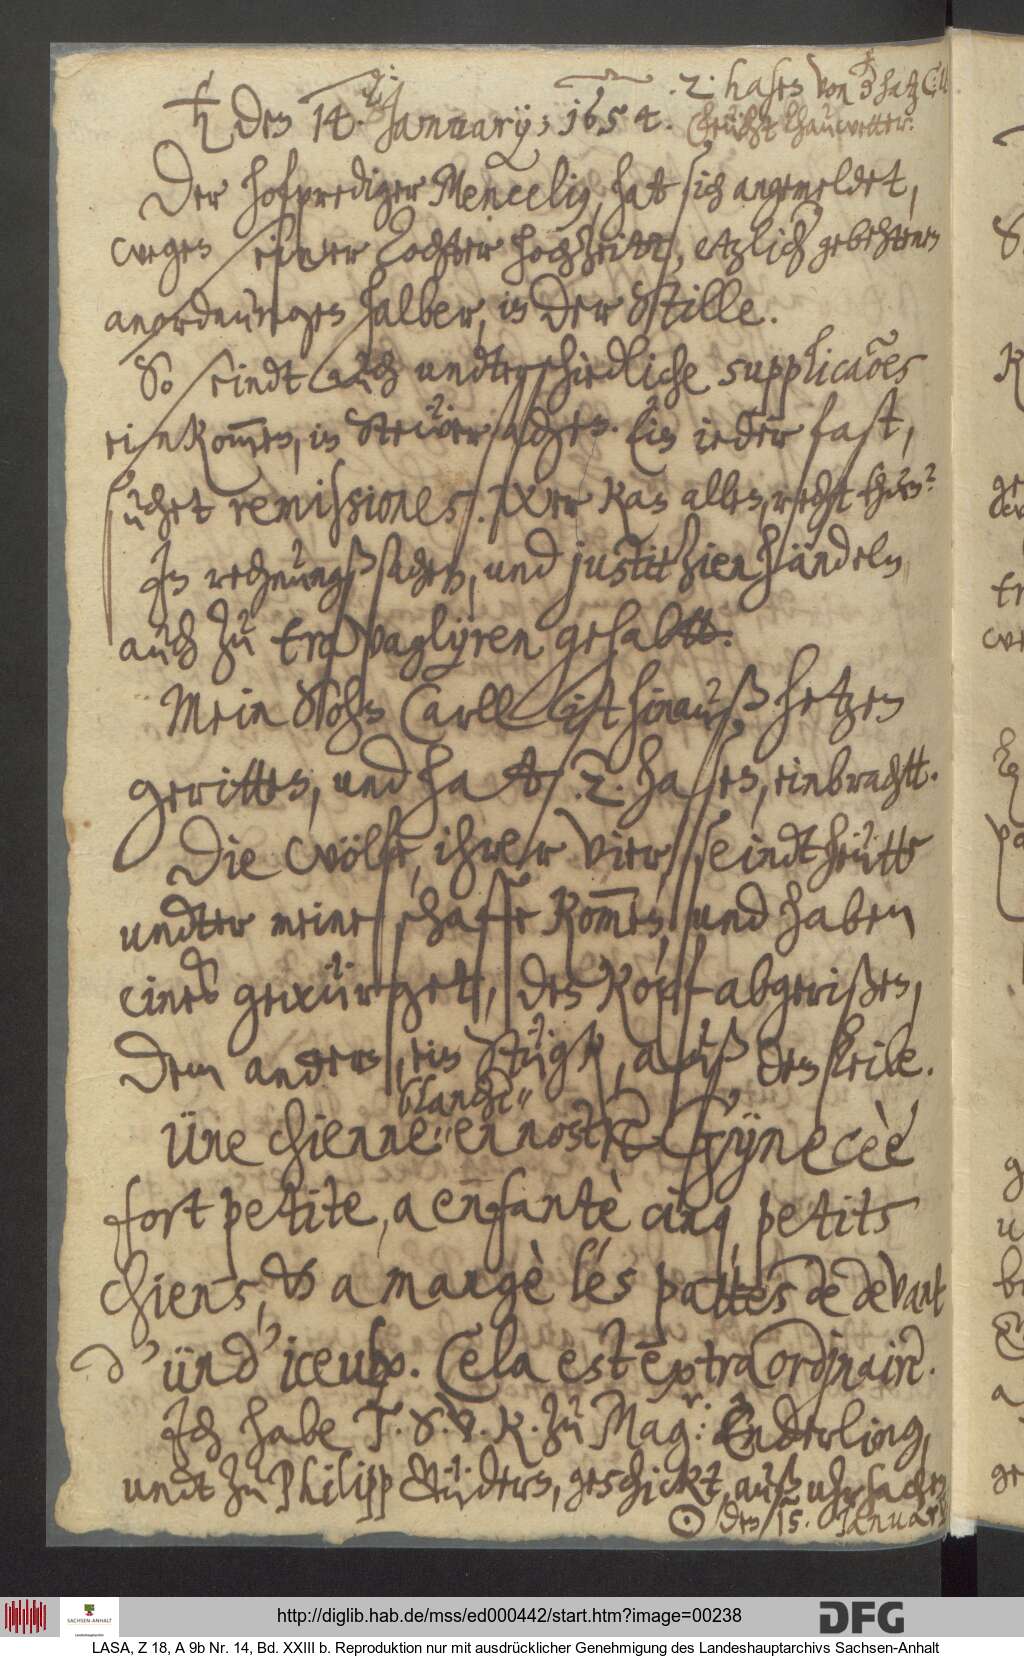 2 hasen von
♄ den 14. January; 1654.
feücht thauwetter.
Der hofprediger Mencelius, hat sich angemeldet,
wegen seiner Tochter hochzeitt, etzlich gebehtenen
anordnungen halber, in der Stille.
So seindt auch undterschiedliche supplicãoes
einkom̄en, in Steüer sachen. Ein ieder fast,
suchet remissiones. Wer kan allen, recht thun?
In rechnungßsachen, und justitzien händeln
auch zu travaglÿren gehabtt.
Mein Sohn Carll ist hinauß hetzen
geritten, und hatt .2. hasen, einbrachtt.
Die wölfe, ihrer vier, seindt heütte
undter meine schaffe kom̄en, und haben
eines gewürget, den Kopf abgerißen,
dem andern, ein Stügk, auß dem leibe.
blanche
Üne chienne en nostre Gÿnecèe
fort petite, a enfantè cinq petits
chiens, & a mangè lés pattés de devant
d'ünd' iceulx. Cela est extraordinaire.
Ich habe T. S. V. K. zu Magr: Enderling,
undt zu Philipp Güders, geschickt, auß uhrsachen
☉ den 15. Januar
http://diglib.hab.de/mss/ed000442/start.htm?image=00238
SACHSEN-ANHALT
DFG
LASA, Z 18, A 9b Nr. 14, Bd. XXIII b. Reproduktion nur mit ausdrücklicher Genehmigung des Landeshauptarchivs Sachsen-Anhalt